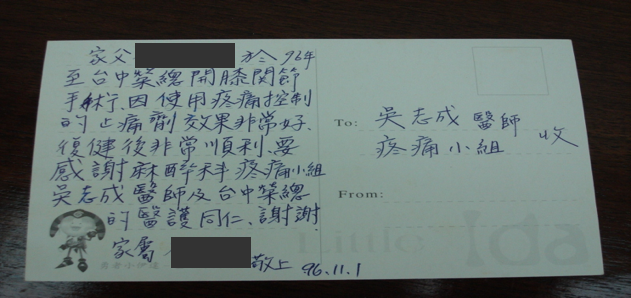 家父 於96年
至台中榮總開膝関節
手術,因使用疼痛控制
的止痛劑效果非常好、
復健後非常順利、要
感謝麻醉科疼痛小組
吳志成醫師及台中榮總
的醫護同仁、謝謝
家屬
敬上 96.11.1
To: 吳志成醫師
疼痛小組 收
From:
Little
勇奇小伊達